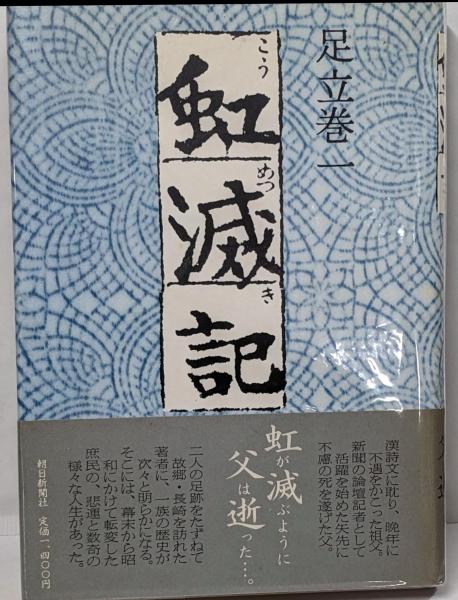 足立巻一
こう
虹
めつ
滅
き
記
漢詩文に耽り、晩年に
不遇をかこった祖父。
新聞の論壇記者として
活躍を始めた矢先に
不慮の死を遂げた父。
虹が滅ぶように
父は逝った…。
二人の足跡をたずねて
故郷・長崎を訪れた
著者に、一族の歴史が
次々と明らかになる。
そこには、幕末から昭
和にかけて転変した
庶民の、悲運と数奇の
様々な人生があった。
朝日新聞社 定価一、四〇〇円